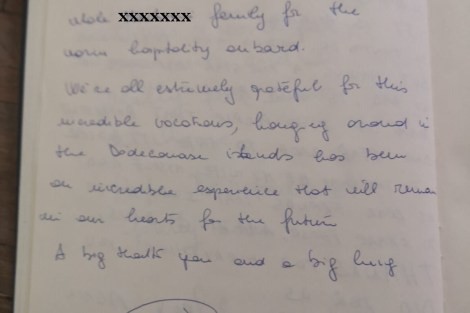 whole xxxxxxx family for the
warm hospitality onboard.
We're all extremely grateful for this
incredible vacations, hanging around in
the Dodecanese islands has been
an incredible experience that will remain
in our hearts for the future
A big thank you and a big hug